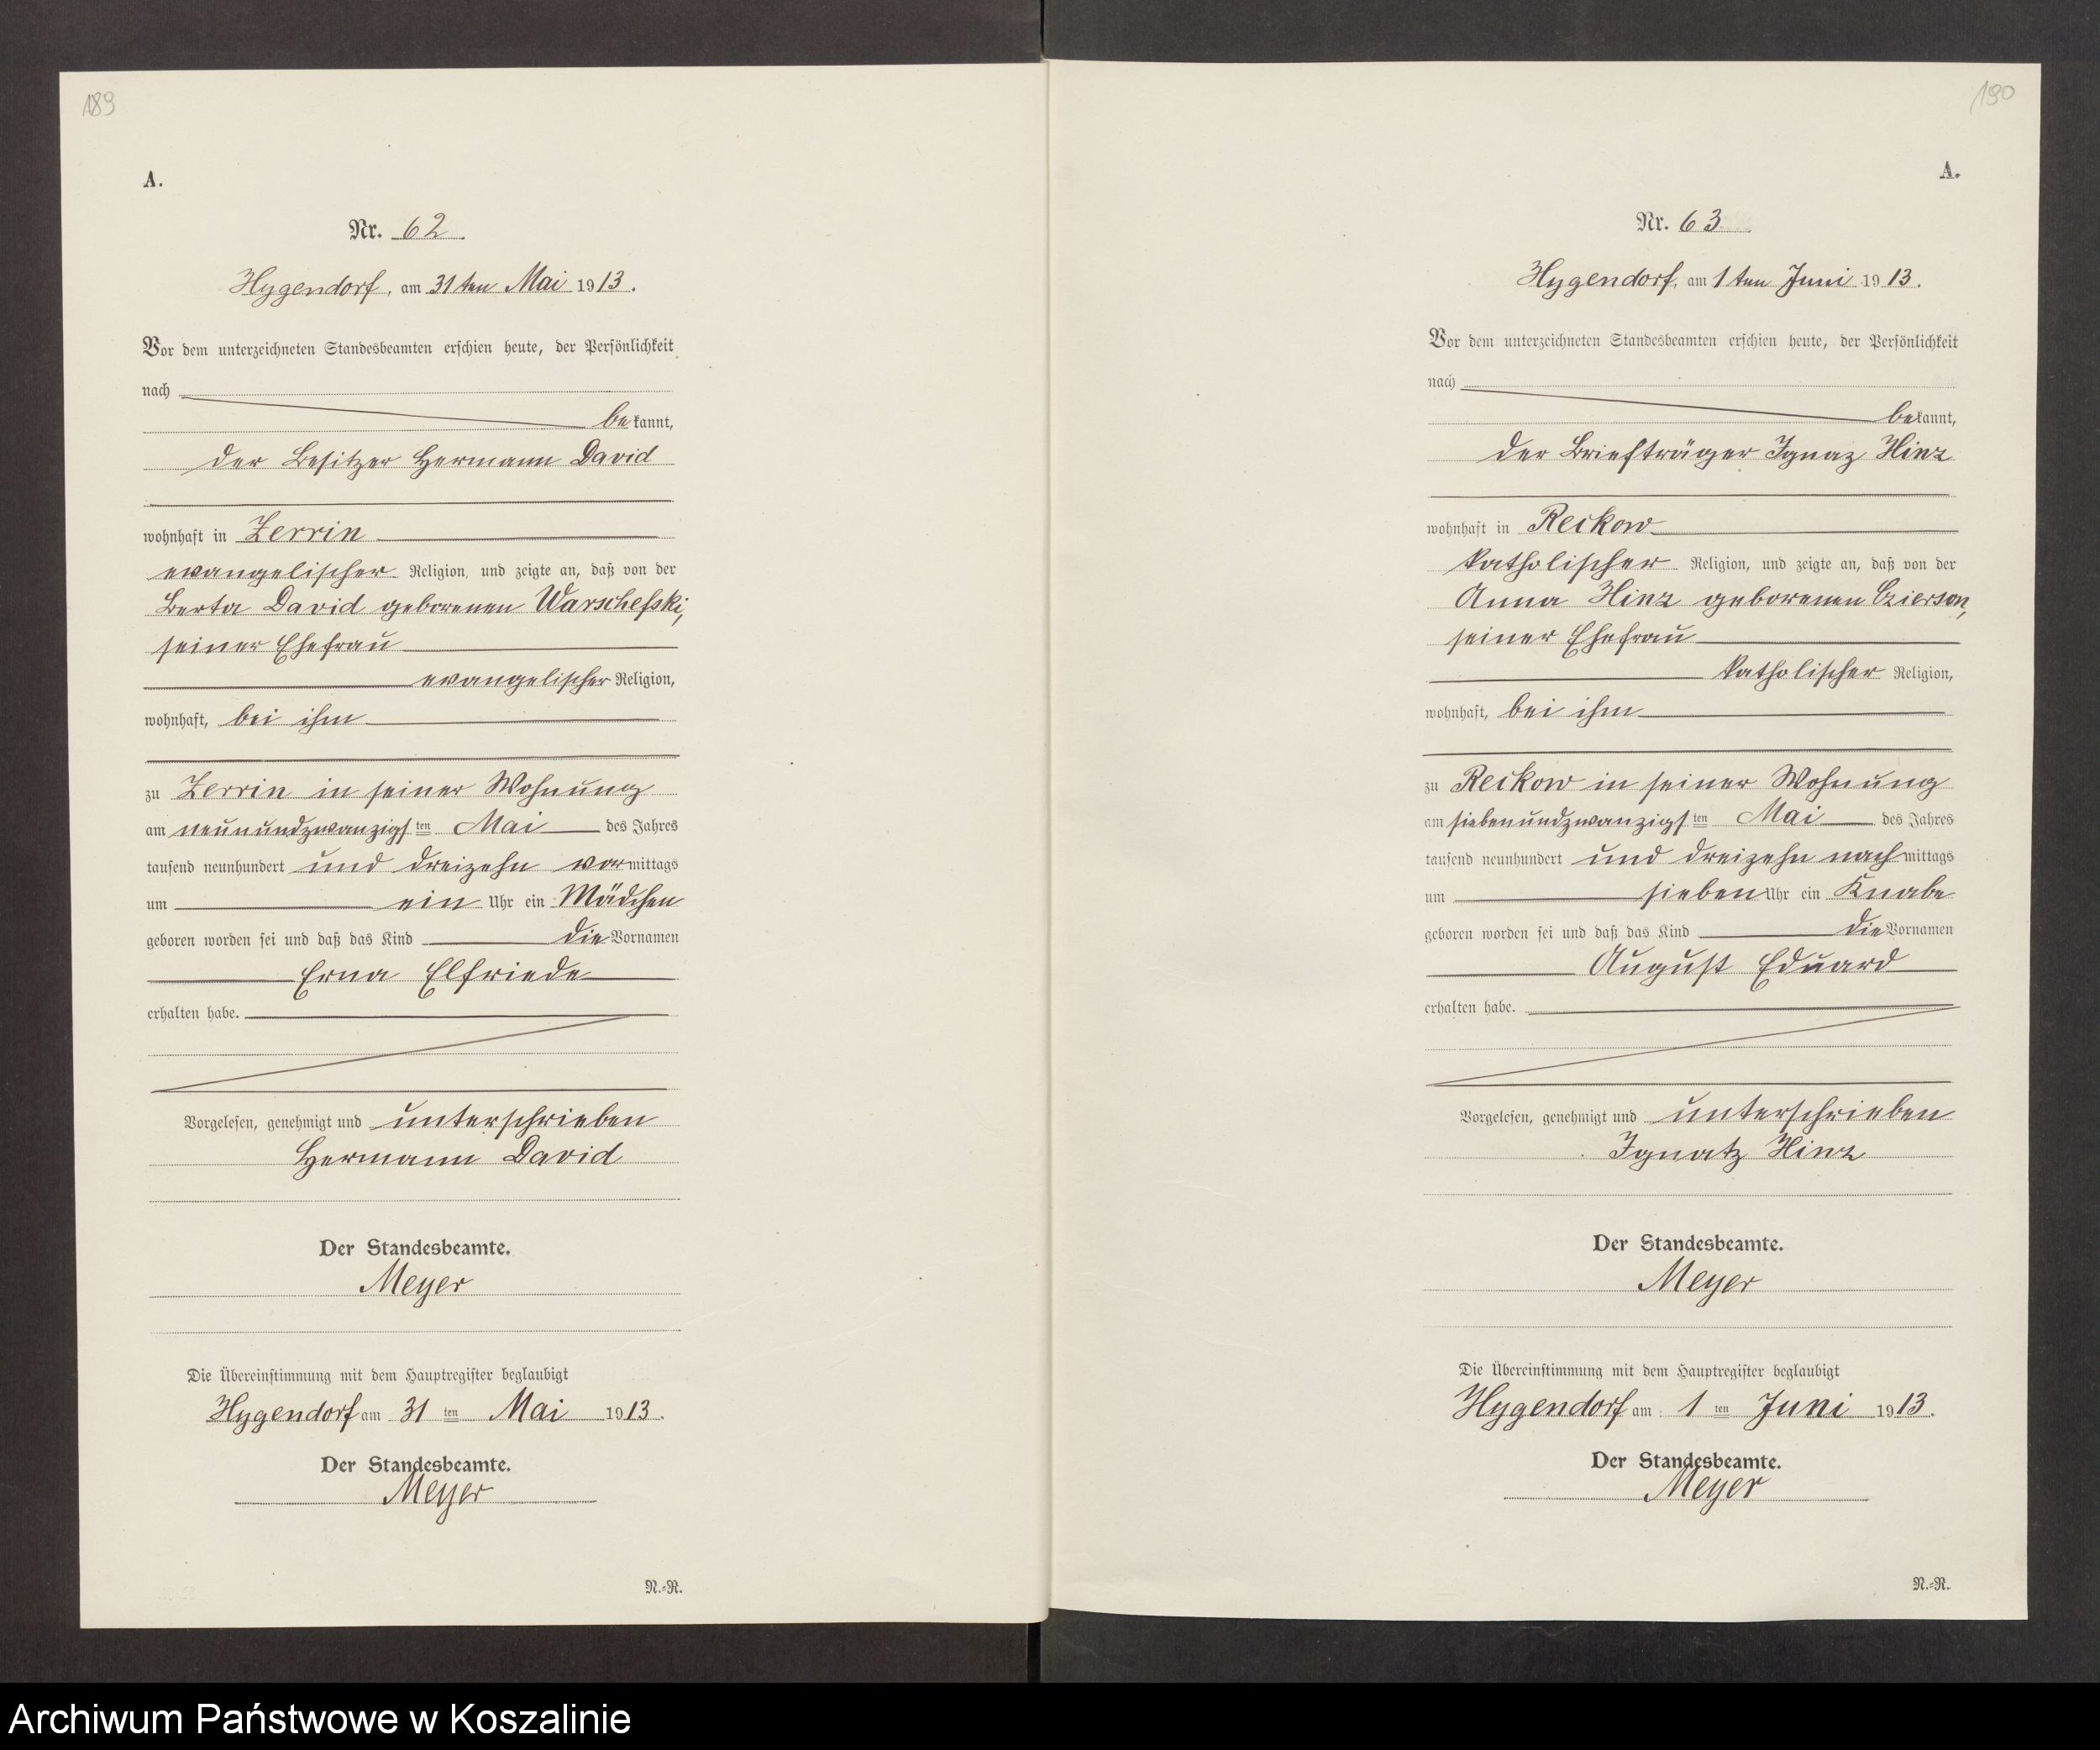 189
A.
Nr. 62
Hygendorf, am 31ten Mai 1913.
Vor dem unterzeichneten Standesbeamten erschien heute, der Persönlichkeit
nach
bekannt,
der Besitzer Hermann David
wohnhaft in Zerrin
evangelischer Religion, und zeigte an, daß von der
Berta David geborenen Warschefski,
seiner Ehefrau
evangelischer Religion,
wohnhaft, bei ihm
zu Zerrin in seiner Wohnung
am neunundzwanzigsten Mai des Jahres
tausend neunhundert und dreizehn vormittags
um ein Uhr ein Mädchen
geboren worden sei und daß das Kind die Vornamen
Erna Elfriede
erhalten habe.
Vorgelesen, genehmigt und unterschrieben
Hermann David
Der Standesbeamte.
Meyer
Die Übereinstimmung mit dem Hauptregister beglaubigt
Hygendorf am 31ten Mai 1913.
Der Standesbeamte.
Meyer
N.=R.
190
A.
Nr. 63
Hygendorf, am 1ten Juni 1913.
Vor dem unterzeichneten Standesbeamten erschien heute, der Persönlichkeit
nach
bekannt,
der Briefträger Ignaz Hinz
wohnhaft in Reckow
katholischer Religion, und zeigte an, daß von der
Anna Hinz geborenen Czierson,
seiner Ehefrau
katholischer Religion,
wohnhaft, bei ihm
zu Reckow in seiner Wohnung
am siebenundzwanzigsten Mai des Jahres
tausend neunhundert und dreizehn nachmittags
um sieben Uhr ein Knabe
geboren worden sei und daß das Kind die Vornamen
August Eduard
erhalten habe.
Vorgelesen, genehmigt und unterschrieben
Ignatz Hinz
Der Standesbeamte.
Meyer
Die Übereinstimmung mit dem Hauptregister beglaubigt
Hygendorf am 1ten Juni 1913.
Der Standesbeamte.
Meyer
N.=R.
Archiwum Państwowe w Koszalinie